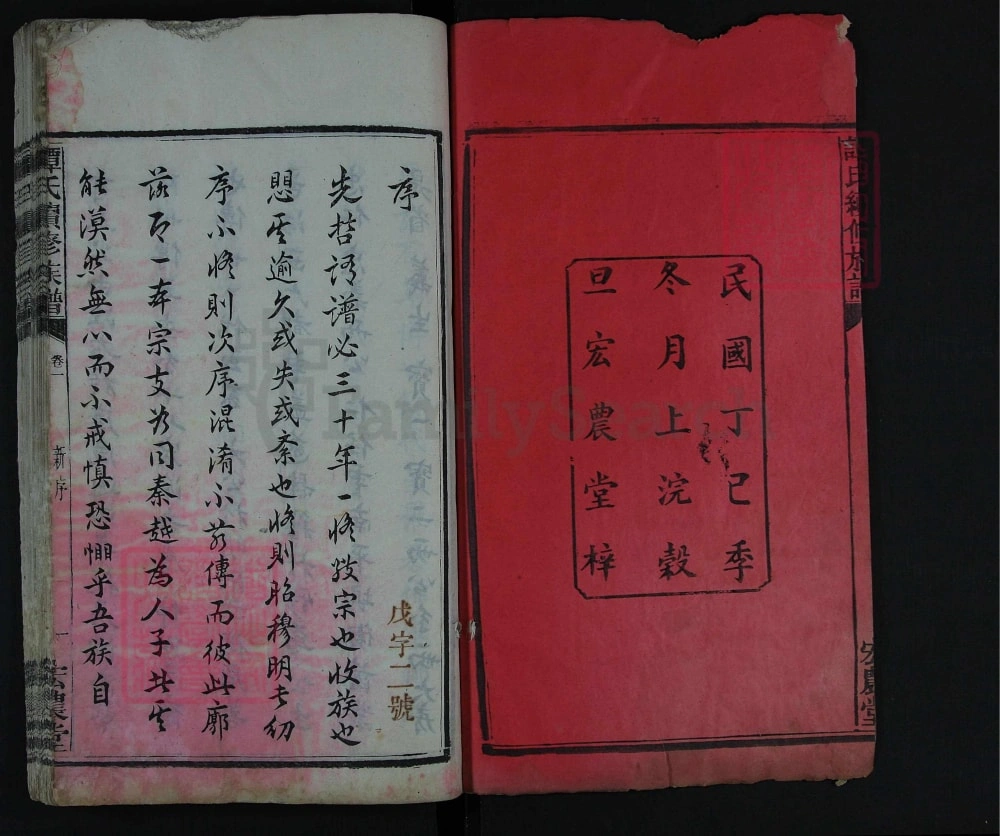 譚氏續修族譜
宏農堂
民國丁巳季
冬月上浣穀
旦宏農堂梓
戊字二號
序
先哲謂譜必三十年一修敬宗也收族也
逾久或失或紊也修則昭穆明長幼
序不修則次序混淆不傳而彼此廓
落一本宗支同秦越為人子
能漠然無心而不戒慎恐懼乎吾族自
譚氏續修族譜
卷一
新序
一
宏農堂
FamilySearch